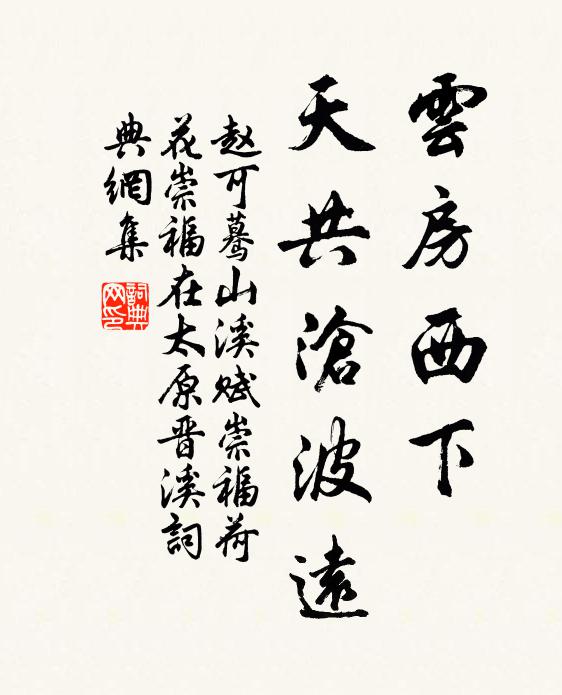 雲房西下
天共滄波遠
赵可蓦山溪赋崇福荷
花崇福在太原晋溪詞
典網集
詞典网印